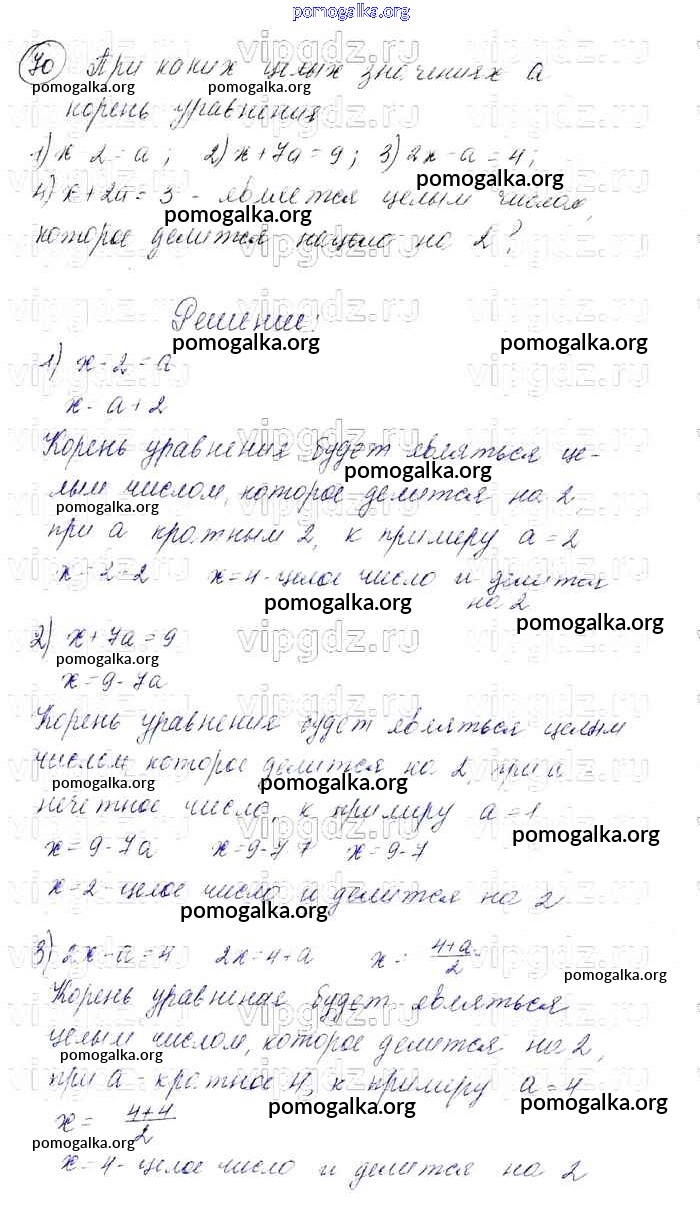 pomogalka.org
70 При каких целых значениях a
корень уравнения
1) x 2 = a ; 2) x + 7a = 9 ; 3) 2x - a = 4 ;
pomogalka.org
4) x + 2a = 3 - является целым числом,
pomogalka.org
которое делится нацело на 2 ?
Решение:
pomogalka.org pomogalka.org
1) x - 2 = a
x - a + 2
Корень уравнения будет являться це-
pomogalka.org
лым числом, которое делится на 2,
pomogalka.org
при a кратным 2, к примеру a = 2
x - 2 = 2 x = 4 - целое число и делится
на 2
pomogalka.org
pomogalka.org
2) x + 7a = 9
pomogalka.org
x = 9 - 7a
Корень уравнения будет являться целым
числом которое делится на 2, при a -
pomogalka.org pomogalka.org
нечетное число, к примеру a = 1
pomogalka.org
x = 9 - 7a x = 9 - 7 · 1 x = 9 - 7
x = 2 - целое число и делится на 2
pomogalka.org
3) 2x - a = 4 2x = 4 + a x = 4+a/2
pomogalka.org
Корень уравнения будет являться
целым числом, которое делится на 2,
pomogalka.org
при a - кратное 4, к примеру a = 4
pomogalka.org pomogalka.org
x = 4+4/2
pomogalka.org
x = 4 - целое число и делится на 2